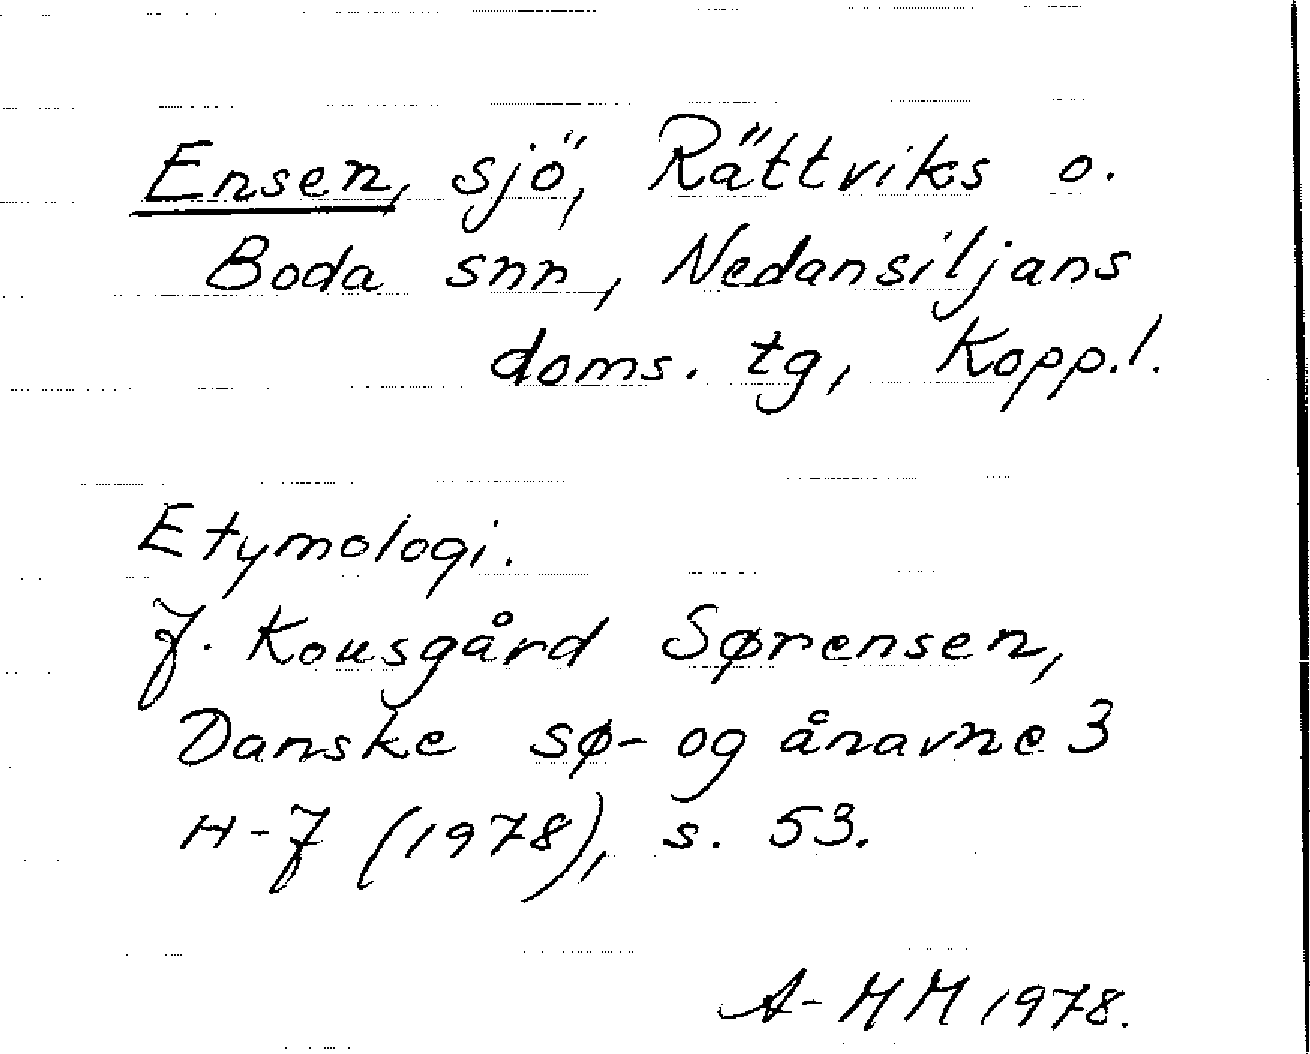 Ensen, sjö, Rättviks o.
Boda snn, Nedansiljans
doms. tg, Kopp.l.
Etymologi.
J. Kousgård Sørensen,
Danske sø- og ånavne 3
H-J (1978), s. 53.
A-MM 1978.